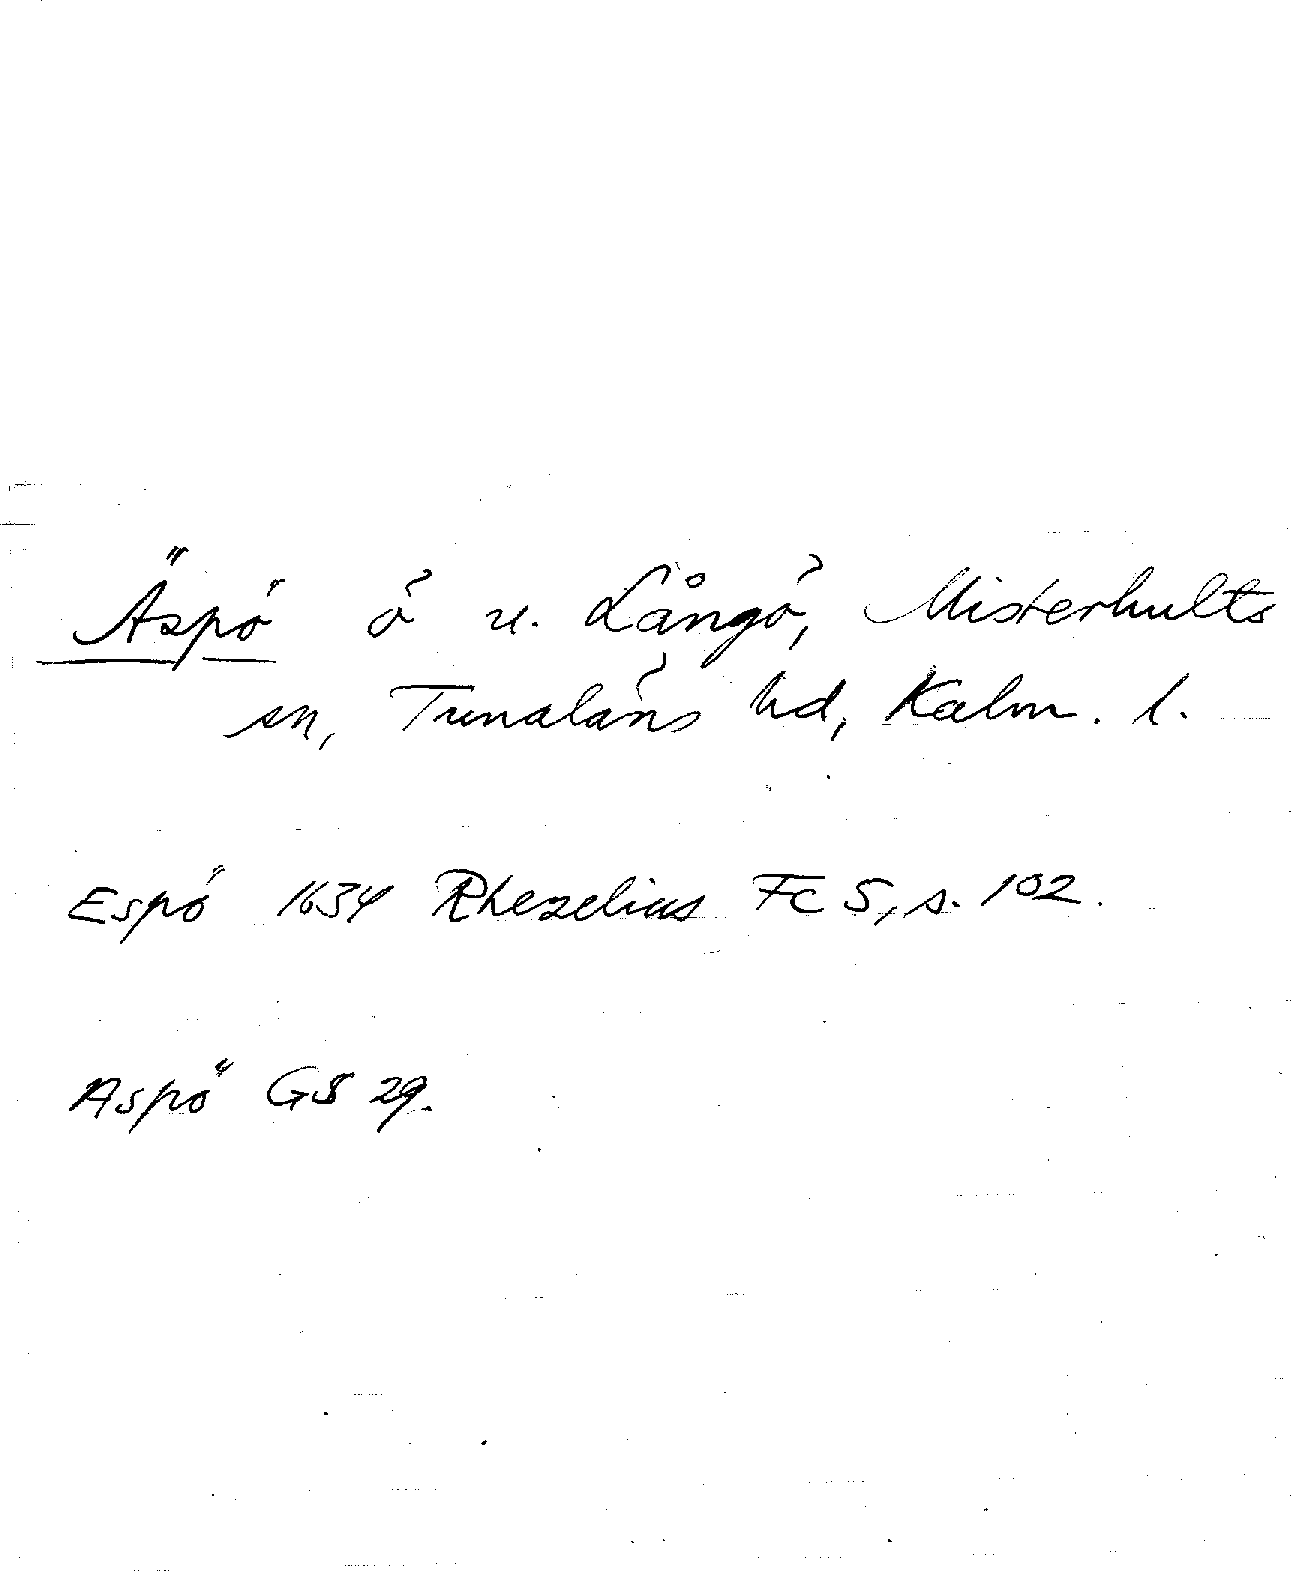 Äspö ö u. Långö, Misterhults
sn, Tunaläns hd, Kalm. l.
Espö 1634 Rhezelius Fc 5, s. 102.
Aspö GS 29.